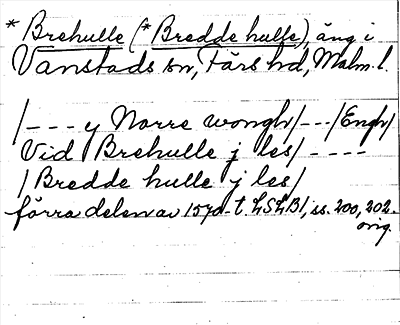 * Brehulle (* Bredde hulle), äng i
Vanstads sn, Färs hd, Malm. l.
/--- y Norre wongh/---/Engh/
Vid Brehulle j les/ ----
/Bredde hulle j les/
förra delen av 1570-t. LSLB1, ss. 200, 202.
orig.